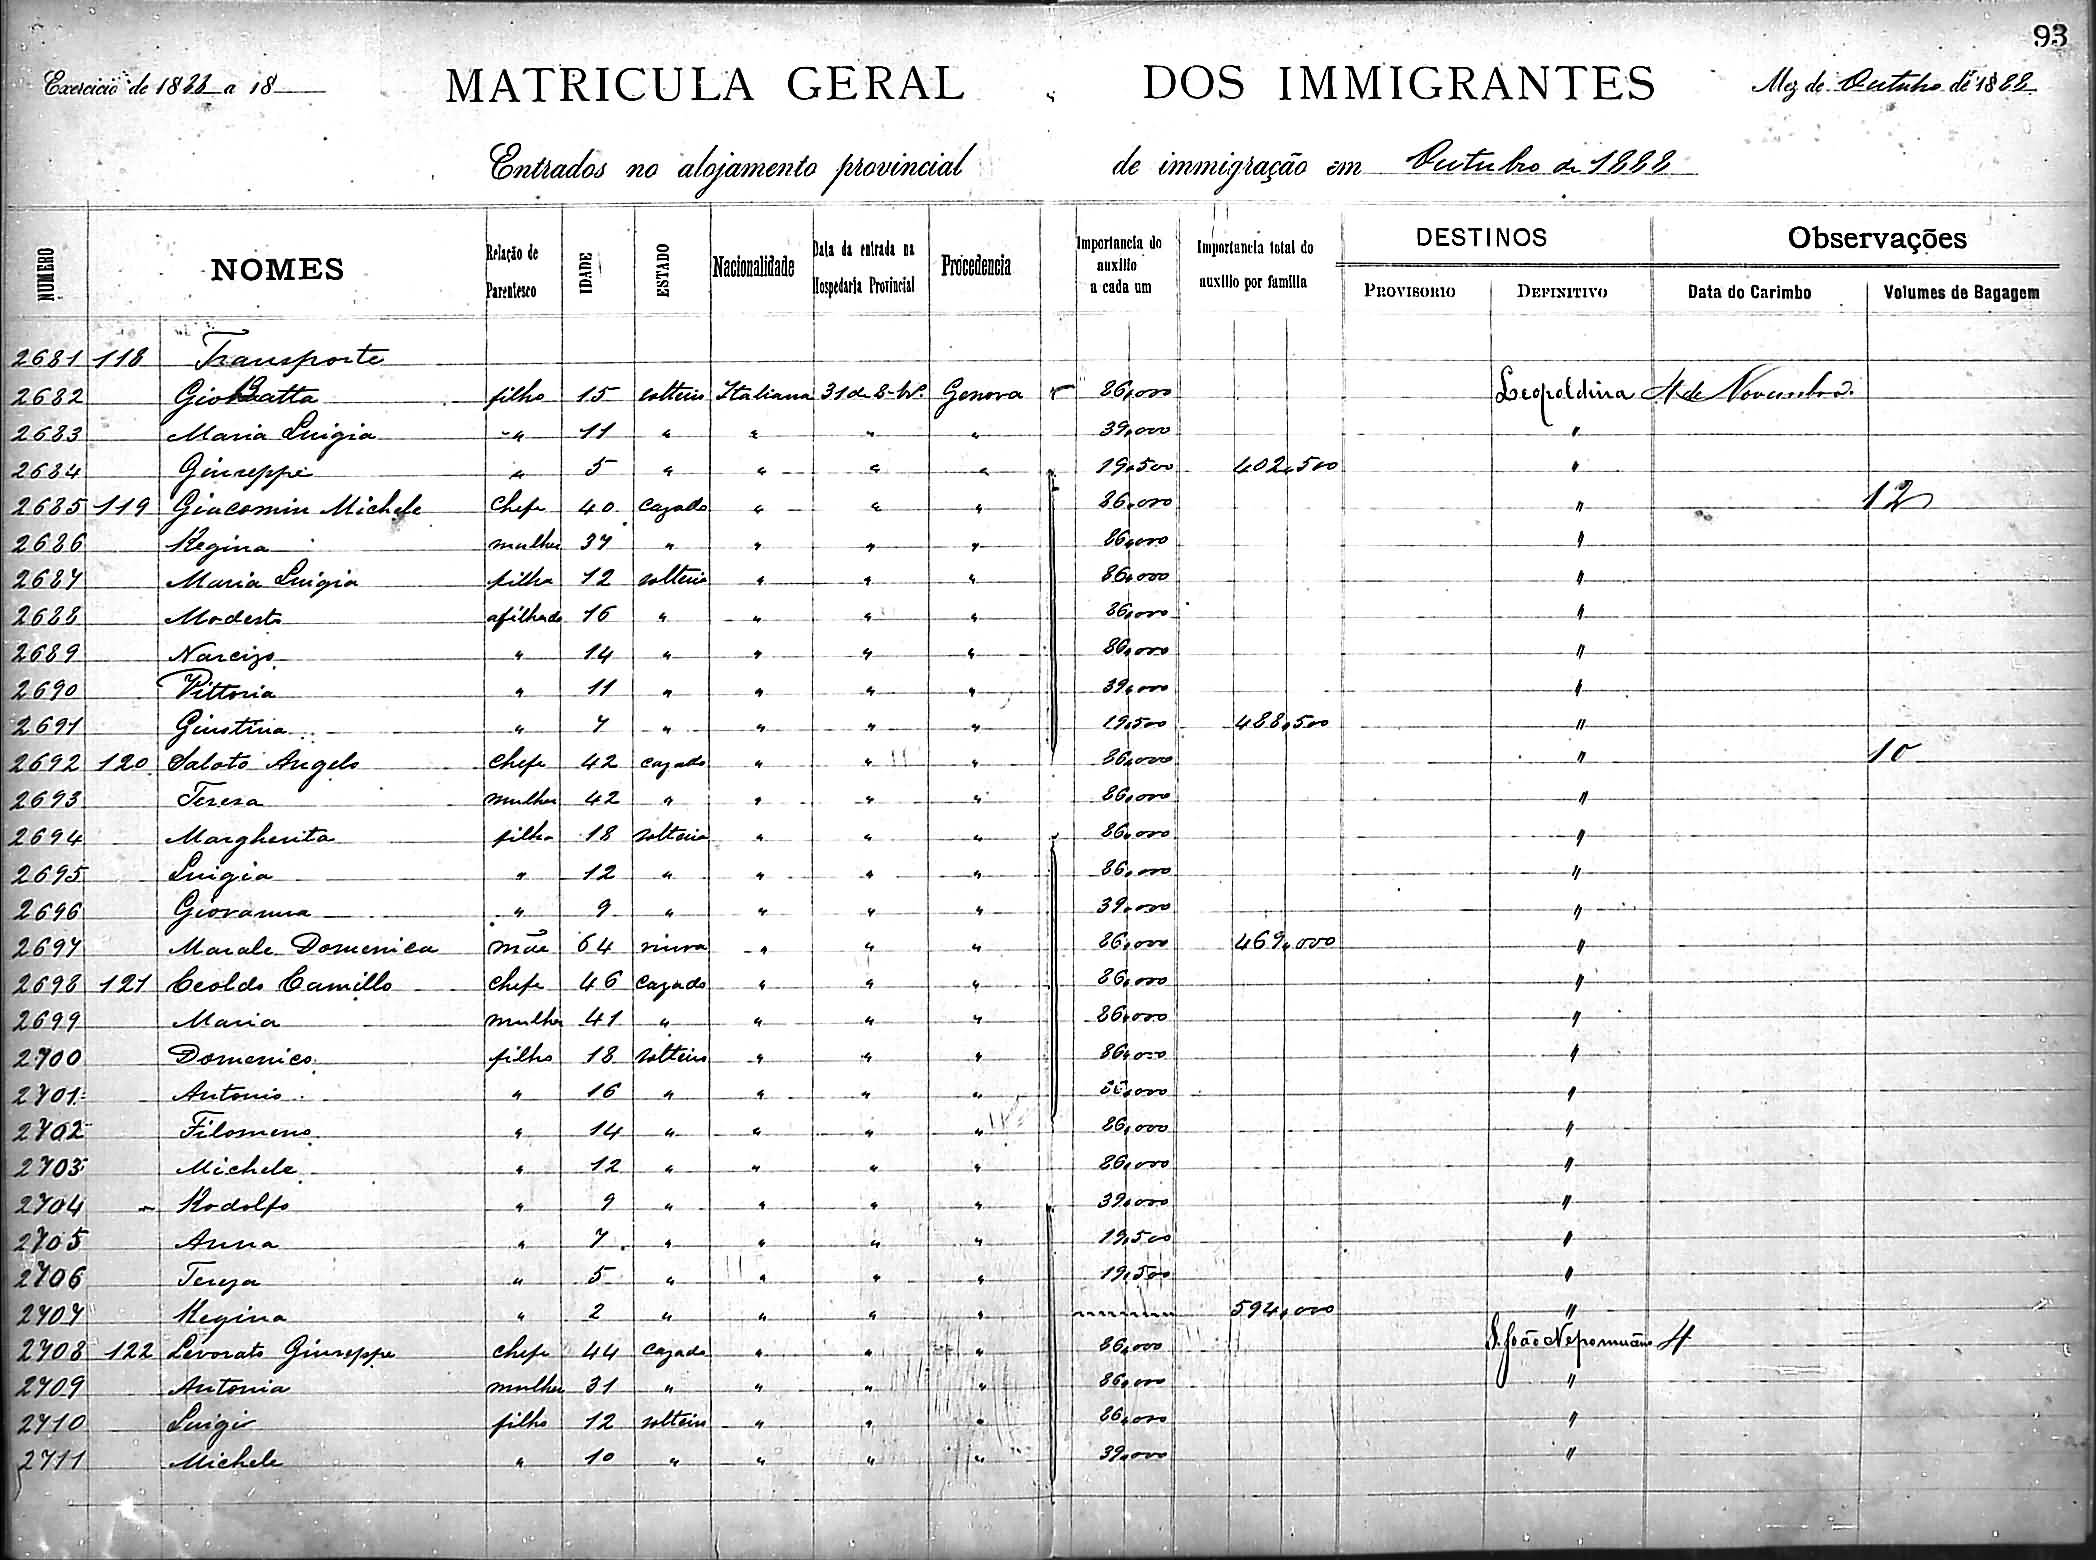 93
Exercicio de 1888 a 18
MATRICULA GERAL DOS IMMIGRANTES
Mez de Outubro de 1888
Entrados no alojamento provincial de immigração em Outubro de 1888
NUMERO NOMES Relação de Parentesco IDADE ESTADO Nacionalidade Data da entrada na Hospedaria Provincial Procedencia Importancia do auxilio a cada um Importancia total do auxilio por familia DESTINOS PROVISORIO DEFINITIVO Observações Data do Carimbo Volumes de Bagagem
2681 118 Transporte
2682 Giobatta filho 15 solteiro Italiana 31 de 8-bro Genova 86,000 Leopoldina 4 de Novembro
2683 Maria Luigia " 11 " " " " 39,000 "
2684 Giuseppe " 5 " " " " 19,500 402,500 "
2685 119 Giacomin Michele chefe 40 cazado " " " 86,000 " 12
2686 Regina mulher 37 " " " " 86,000 "
2687 Maria Luigia filha 12 solteira " " " 86,000 "
2688 Modesto afilhado 16 " " " " 86,000 "
2689 Narcizo " 14 " " " " 86,000 "
2690 Vittoria " 11 " " " " 39,000 "
2691 Giustina " 7 " " " " 19,500 488,500 "
2692 120 Saloto Angelo chefe 42 cazado " " " 86,000 " 10
2693 Teresa mulher 42 " " " " 86,000 "
2694 Margherita filha 18 solteira " " " 86,000 "
2695 Luigia " 12 " " " " 86,000 "
2696 Giovanna " 9 " " " " 39,000 "
2697 Marale Domenica mãe 64 viuva " " " 86,000 469,000 "
2698 121 Ceoldo Camillo chefe 46 cazado " " " 86,000 "
2699 Maria mulher 41 " " " " 86,000 "
2700 Domenico filho 18 solteiro " " " 86,000 "
2701 Antonio " 16 " " " " 86,000 "
2702 Filomeno " 14 " " " " 86,000 "
2703 Michele " 12 " " " " 86,000 "
2704 Rodolfo " 9 " " " " 39,000 "
2705 Anna " 7 " " " " 19,500 "
2706 Tereza " 5 " " " " 19,500 "
2707 Regina " 2 " " " " 594,000 "
2708 122 Levorato Giuseppe chefe 44 cazado " " " 86,000 S. João Nepomuceno 4
2709 Antonia mulher 31 " " " " 86,000 "
2710 Luigi filho 12 solteiro " " " 86,000 "
2711 Michele " 10 " " " " 39,000 "